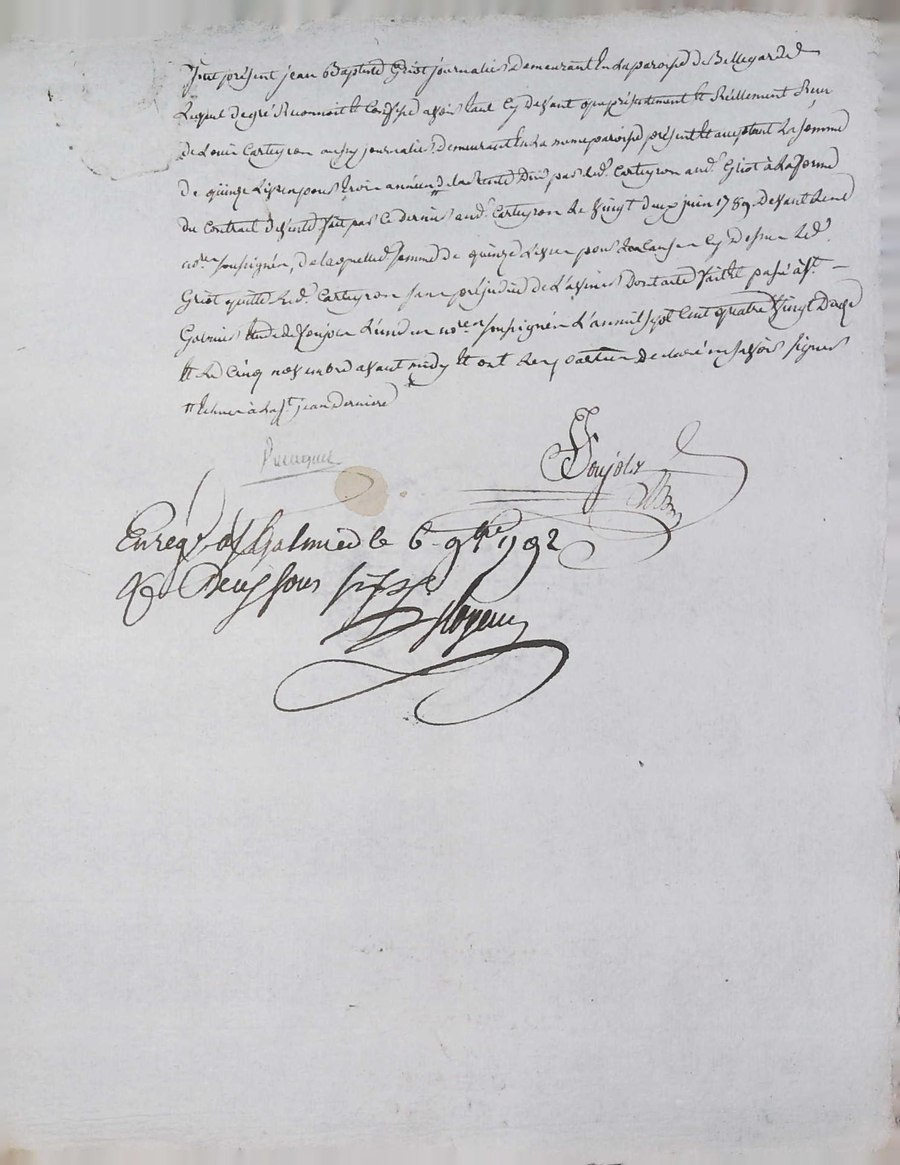 fut présent jean Baptiste Griot journalier demeurant En la paroisse de Bellegarde
Lequel de gré Reconnoit et Confesse avoir tant cy devant que présentement et Réellement Reçu
de Louis Carteyron aussy journalier demeurant En la même paroisse présent et acceptant La somme
de quinze Livres pour trois années # de la rente due par led. Carteyron aud. Griot à La forme
du Contrat de vente fait par ce dernier aud. Carteyron Le vingt deux juin 1789 devant Le né
nore soussigné, de laquelle somme de quinze Livres pour Les Causes cy dessus Led.
Griot quitte Led. Carteyron sans préjudice de L'avenir Dont acte fait et passé à St.
Galmier Etude de Soujols L'un des nores soussigné L'an mil sept Cent quatre Vingt Douze
Et Le Cinq novembre avant midy Et ont Les parties déclaré ne savoir signer
# Echues à la St. jean dernière
Soujols
nore
Enregé à St Galmier le 6 9bre 1792
R. Deux sous six d.